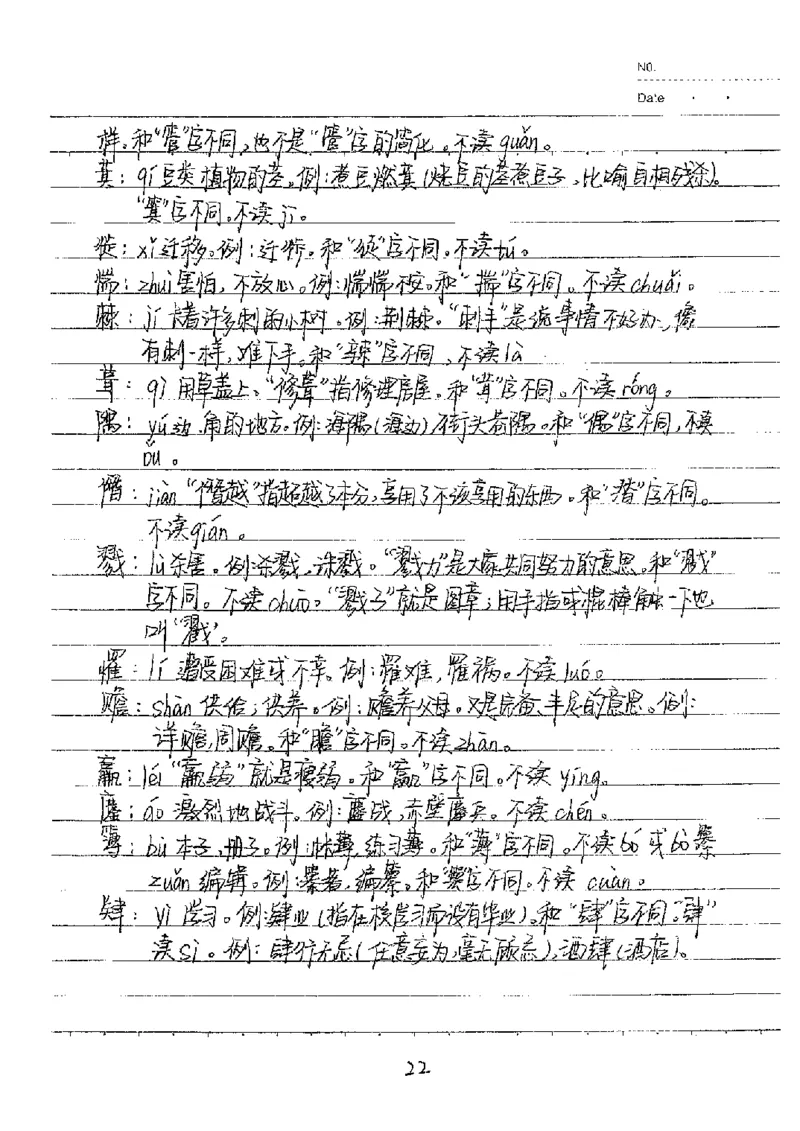 NO.
Date
样，和“管”字不同，也不是“管”字的简化。不读guǎn。
萁：qí豆类植物的茎。例：煮豆燃萁（烧豆的茎煮豆子，比喻自相残杀）。
“箕”字不同。不读jī。
徙：xǐ迁移。例：迁徙。和“徒”字不同。不读tú。
惴：zhuì害怕，不放心。例：惴惴不安。和“揣”字不同。不读chuǎi。
棘：jí长着许多刺的小树。例：荆棘。“刺手”是说事情不好办，像
有刺一样，难下手。和“辣”字不同，不读là
葺：qì用草盖上。“修葺”指修理房屋。和“茸”字不同。不读róng。
隅：yú边、角的地方。例：海隅（海边），街头巷隅。和“偶”字不同，不读
ǒu。
僭：jiàn“僭越”指超越了本分，享用了不该享用的东西。和“潜”字不同。
不读qián。
戮：lù杀害。例：杀戮，诛戮。“戮力”是大家共同努力的意思。和“戳”
字不同。不读chuō。“戳子”就是图章；用手指或棍棒触一下也
叫“戳”。
罹：lí遭受困难或不幸。例：罹难，罹祸。不读luó。
赡：shàn供给；供养。例：赡养父母。又是完备、丰足的意思。例：
详赡，周赡。和“瞻”字不同。不读zhān。
羸：léi“羸弱”就是瘦弱。和“赢”字不同。不读yíng。
鏖：áo激烈地战斗。例：鏖战，赤壁鏖兵。不读chén。
簿：bù本子、册子。例：帐簿，练习簿。和“薄”字不同。不读bó或bò纂
zuǎn编辑。例：纂者，编纂。和“篡”字不同。不读cuàn。
肄：yì学习。例：肄业（指在校学习而没有毕业）。和“肆”字不同。“肆”
读sì。例：肆行无忌（任意妄为，毫无顾忌），酒肆（酒店）。
22